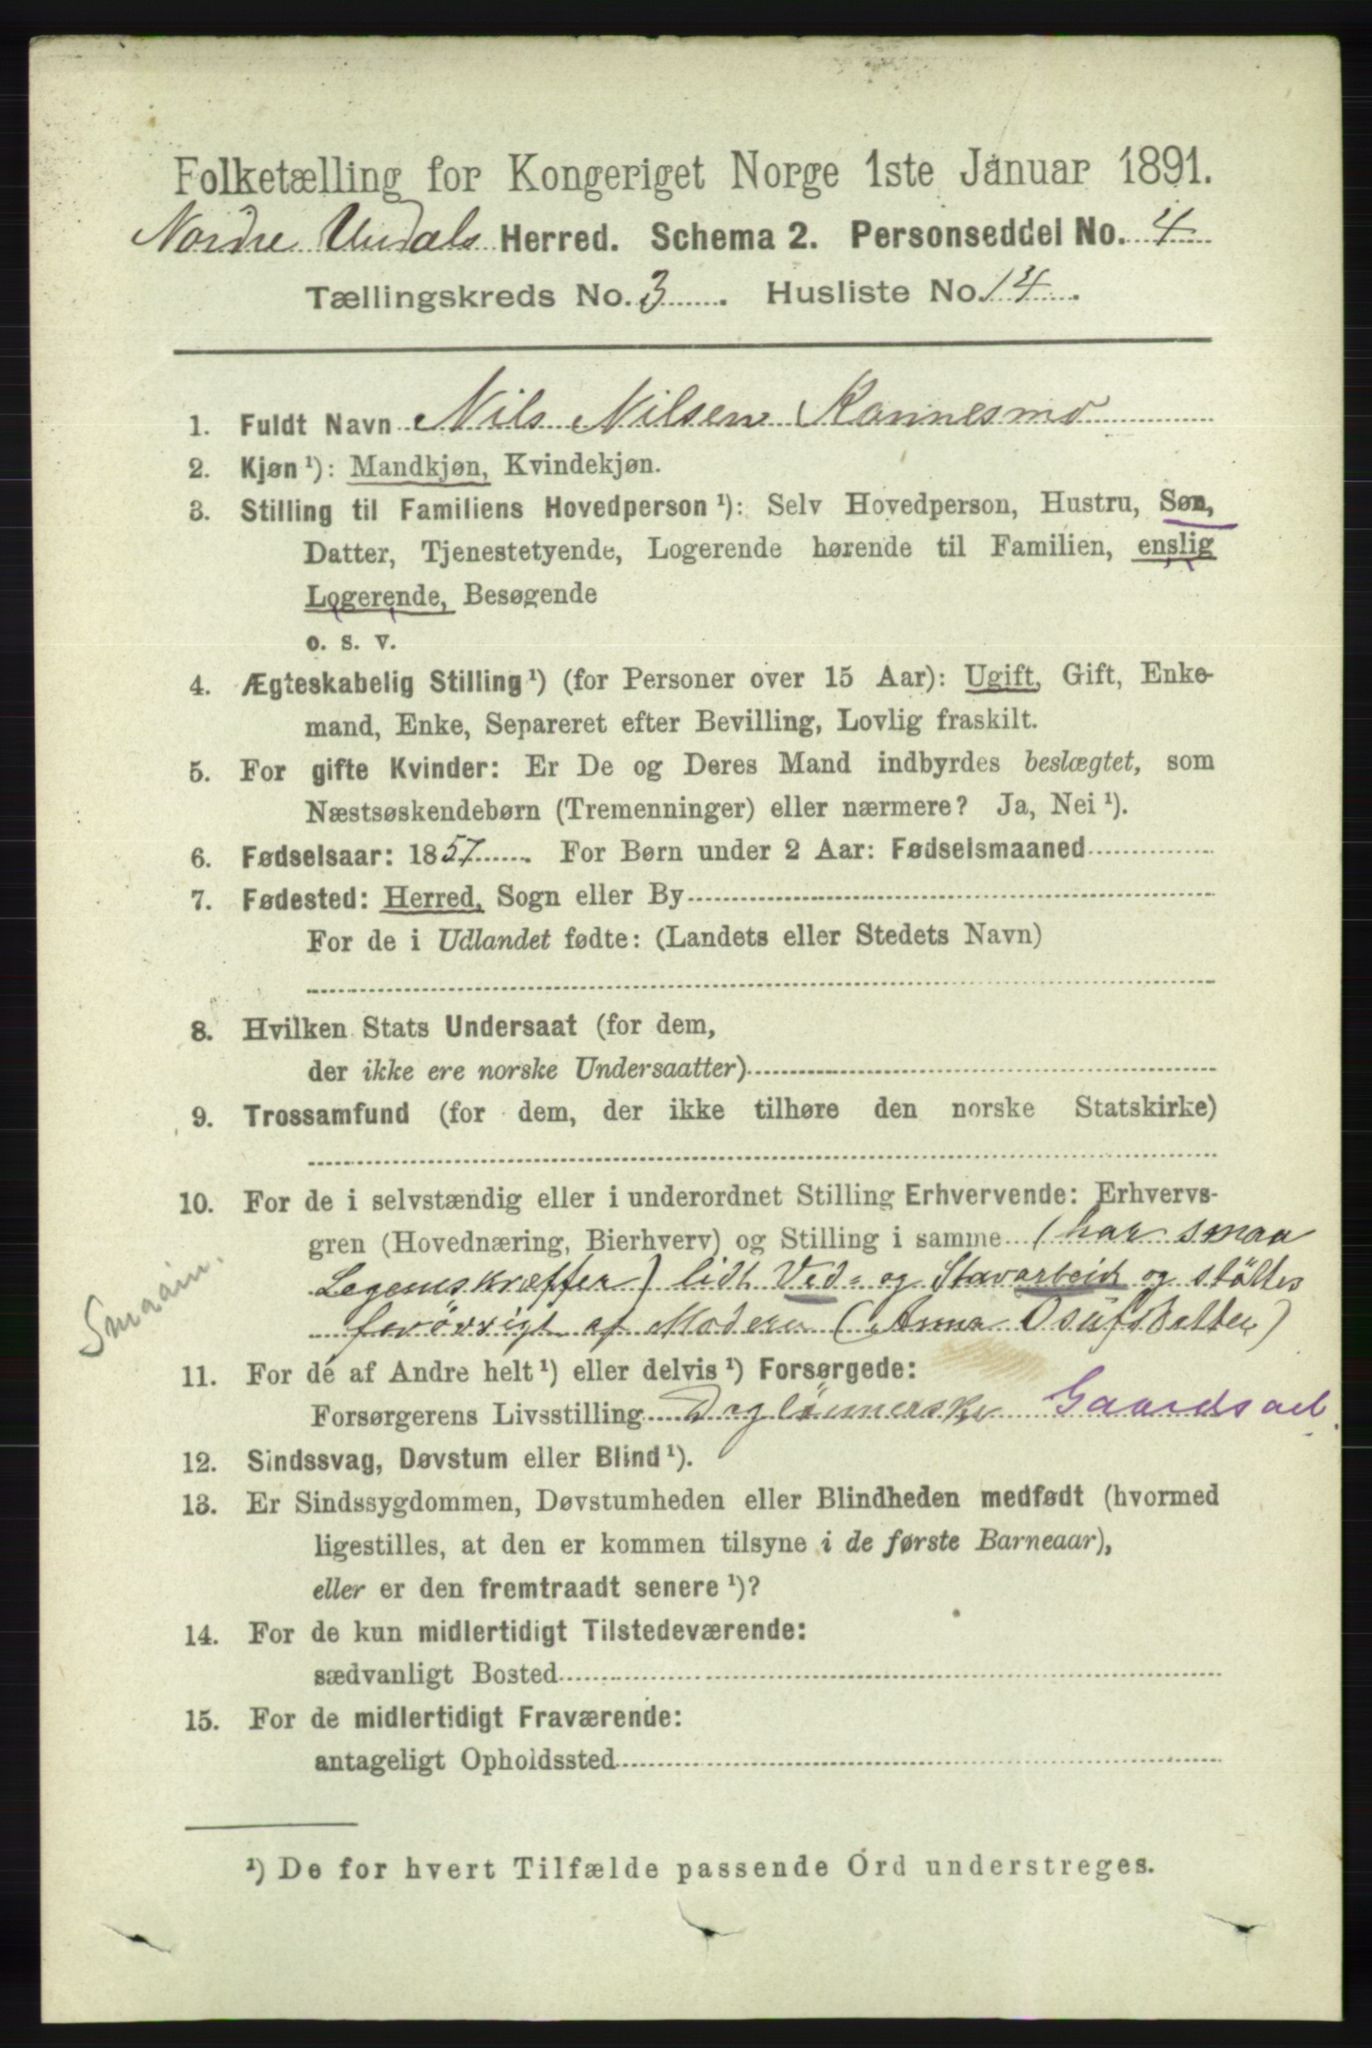 Folketælling for Kongeriget Norge 1ste Januar 1891.
Nordre Undals Herred. Schema 2. Personseddel No. 4
Tællingskreds No. 3. Husliste No. 14.
1. Fuldt Navn Nils Nilsen Kannesmo
2. Kjøn ¹): Mandkjøn, Kvindekjøn.
3. Stilling til Familiens Hovedperson ¹): Selv Hovedperson, Hustru, Søn,
Datter, Tjenestetyende, Logerende hørende til Familien, enslig
Logerende, Besøgende
o. s. v.
4. Ægteskabelig Stilling ¹) (for Personer over 15 Aar): Ugift, Gift, Enke-
mand, Enke, Separeret efter Bevilling, Lovlig fraskilt.
5. For gifte Kvinder: Er De og Deres Mand indbyrdes beslægtet, som
Næstsøskendebørn (Tremenninger) eller nærmere? Ja, Nei ¹).
6. Fødselsaar: 1857. For Børn under 2 Aar: Fødselsmaaned
7. Fødested: Herred, Sogn eller By
For de i Udlandet fødte: (Landets eller Stedets Navn)
8. Hvilken Stats Undersaat (for dem,
der ikke ere norske Undersaatter)
9. Trossamfund (for dem, der ikke tilhøre den norske Statskirke)
10. For de i selvstændig eller i underordnet Stilling Erhvervende: Erhvervs-
gren (Hovednæring, Bierhverv) og Stilling i samme (har smaa
Legemskræfter) lidt Ved- og Stavarbeid og støttes
forøvrigt af Moderen (Anna Osufsdatter)
Smaain.
11. For de af Andre helt ¹) eller delvis ¹) Forsørgede:
Forsørgerens Livsstilling Daglønnerske Gaardsarb.
12. Sindssvag, Døvstum eller Blind ¹).
13. Er Sindssygdommen, Døvstumheden eller Blindheden medfødt (hvormed
ligestilles, at den er kommen tilsyne i de første Barneaar),
eller er den fremtraadt senere ¹)?
14. For de kun midlertidigt Tilstedeværende:
sædvanligt Bosted
15. For de midlertidigt Fraværende:
antageligt Opholdssted
¹) De for hvert Tilfælde passende Ord understreges.